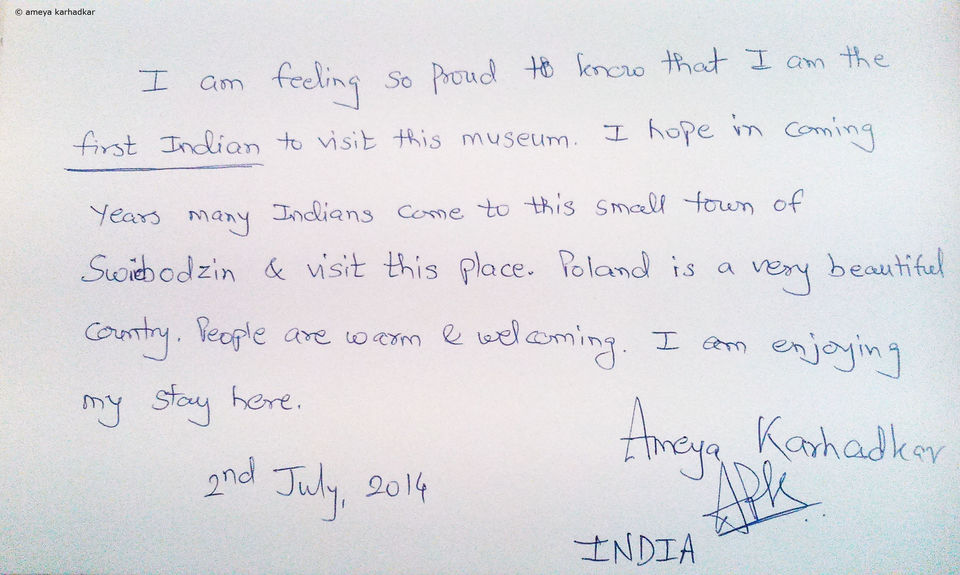 © ameya karhadkar
I am feeling so proud to know that I am the
first Indian to visit this museum. I hope in coming
years many Indians come to this small town of
Swiebodzin & visit this place. Poland is a very beautiful
country. People are warm & welcoming. I am enjoying
my stay here.
Ameya Karhadkar
APK
2nd July, 2014
INDIA